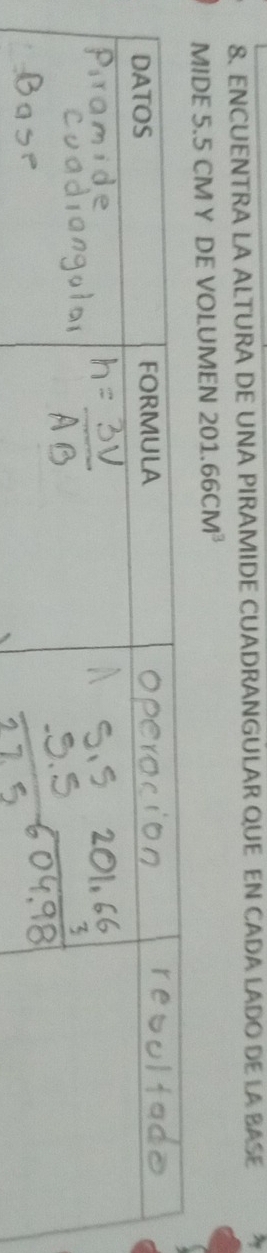 8. ENCUENTRA LA ALTURA DE UNA PIRAMIDE CUADRANGULAR QUE EN CADA LADO DE LA BASE
MIDE 5.5 CM Y DE VOLUMEN 201.66CM³
DATOS FORMULA operacion resultado
Piramide
cuadrangular
Base
h = 3V
AB
5.5
5.5
27.5
201.66
3
604.98